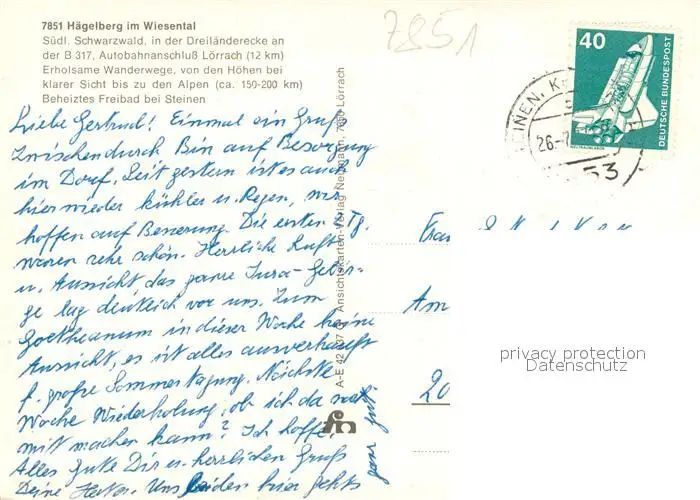 7851 Hägelberg im Wiesental
Südl. Schwarzwald, in der Dreiländerecke an
der B 317, Autobahnanschluß Lörrach (12 km)
Erholsame Wanderwege, von den Höhen bei
klarer Sicht bis zu den Alpen (ca. 150-200 km)
Beheiztes Freibad bei Steinen
7851
40
DEUTSCHE BUNDESPOST
Liebe Gertrud! Einmal ein Gruß
zwischendurch. Bin auf Besorgung
im Dorf. Seit gestern ist es auch
hier wieder kühler u. Regen, wir
hoffen auf Besserung. Die ersten Tg.
waren sehr schön. Herrliche Luft
u. Aussicht das ganze Jura-Gebir-
ge lag deutlich vor uns. Zum
Goetheanum in dieser Woche keine
Aussicht, es ist alles ausverkauft
f. große Sommertagung. Nächste
Woche Wiederholung, ob ich da noch
mit machen kann? Ich hoffe.
Alles Gute Dir u. herzlichen Gruß
Deine Uns beiden hier gehts
ganz gut
Ansichtskarten-Verlag 7850 Lörrach
Frau
Am
20
privacy protection
Datenschutz